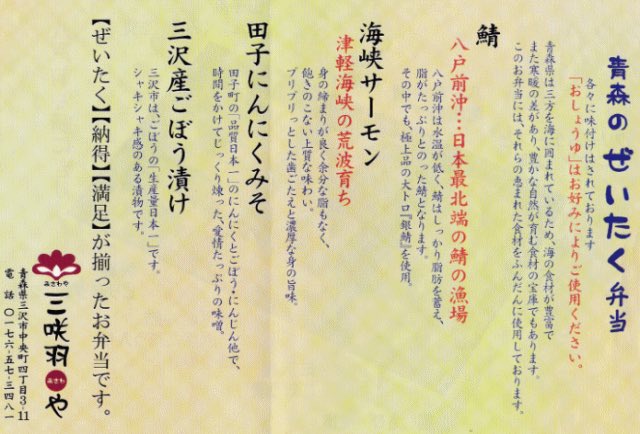 青森のぜいたく弁当
各々に味付けはされております
「おしょうゆ」はお好みによりご使用ください。
青森県は三方を海に囲まれているため、海の食材が豊富で
また寒暖の差があり、豊かな自然が育む食材の宝庫でもあります。
このお弁当には、それらの恵まれた食材をふんだんに使用しております。
鯖
八戸前沖…日本最北端の鯖の漁場
八戸前沖は水温が低く、鯖はしっかり脂肪を蓄え、
脂がたっぷりとのった鯖となります。
その中でも、極上品の大トロ『銀鯖』を使用。
海峡サーモン
津軽海峡の荒波育ち
身の締まりが良く余分な脂もなく、
飽きのこない上質な味わい。
プリプリっとした歯ごたえと濃厚な身の旨味。
田子にんにくみそ
田子町の「品質日本一」のにんにくとごぼう・にんじん他で、
時間をかけてじっくり煉った、愛情たっぷりの味噌。
三沢産ごぼう漬け
三沢市は、ごぼうの「生産量日本一」です。
シャキシャキ感のある漬物です。
【ぜいたく】【納得】【満足】が揃ったお弁当です。
みさわや
三咲羽や
みさわ
青森県三沢市中央町四丁目3-11
電話 〇一七六-五七-三四八一